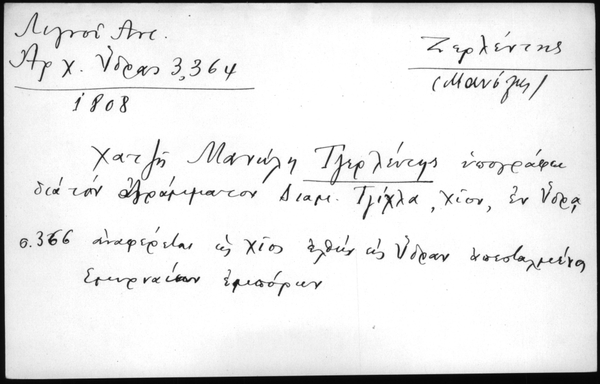 Λιγνού Αντ.
Αρχ. Ύδρας 3,364
1808
Ζερλέντης
(Μανόλης)
Χατζῆ Μανώλη Τζερλέντης ὑπογράφει
διὰ τὸν ἀγράμματον Διαμ. Τζίχλα, Χίον, ἐν Ὕδρᾳ
σ. 366 ἀναφέρεται ὡς Χῖος ἐλθὼν εἰς Ὕδραν ἀπεσταλμένος
Σμυρναίων ἐμπόρων